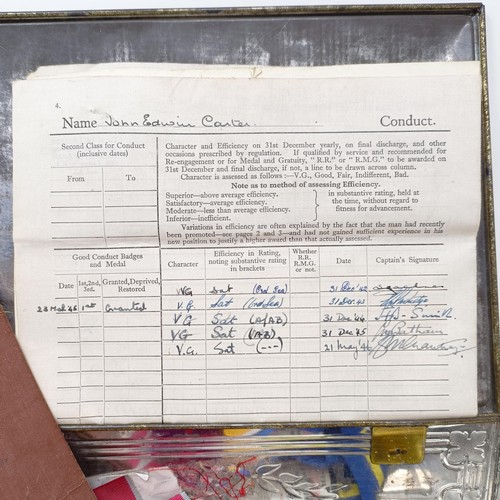 4.
Name John Edwin Carter. Conduct.
Second Class for Conduct
(inclusive dates)
From To
Character and Efficiency on 31st December yearly, on final discharge, and other
occasions prescribed by regulation. If qualified by service and recommended for
Re-engagement or for Medal and Gratuity, "R.R." or "R.M.G." to be awarded on
31st December and final discharge, if not, a line to be drawn across column.
Character is assessed as follows :—V.G., Good, Fair, Indifferent, Bad.
Note as to method of assessing Efficiency.
Superior—above average efficiency.
Satisfactory—average efficiency.
Moderate—less than average efficiency.
Inferior—inefficient.
in substantive rating, held at
the time, without regard to
fitness for advancement.
Variations in efficiency are often explained by the fact that the man had recently
been promoted—see pages 2 and 3—and had not gained sufficient experience in his
new position to justify a higher award than that actually assessed.
Good Conduct Badges
and Medal
Date 1st, 2nd, 3rd. Granted, Deprived, Restored
Character
Efficiency in Rating,
noting substantive rating
in brackets
Whether
R.R.
R.M.G.
or not.
Date
Captain's Signature
VG Sat (Ord Sea) 31 Dec '42
V.G. Sat (Ord Sea) 31 Dec 43
23 Mar 45 1st Granted
VG Sat (A/AB) 31 Dec '44
VG Sat (AB) 31 Dec '45
V.G. Sat (---) 21 May '46